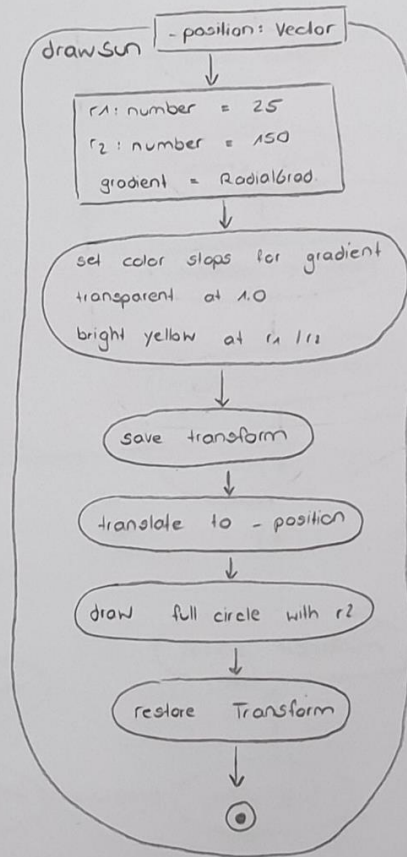 _position: Vector
drawSun
r1: number = 25
r2: number = 150
gradient = RadialGrad.
set color stops for gradient
transparent at 1.0
bright yellow at r1/r2
save transform
translate to _position
draw full circle with r2
restore Transform